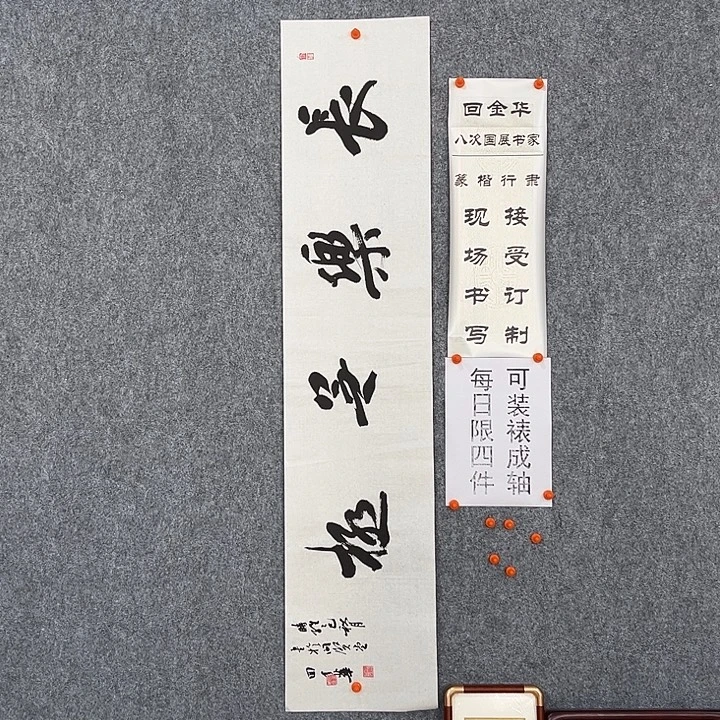 長樂無極
回金华
八次国展书家
篆楷行隶
接受订制
现场书写
可装裱成轴
每日限四件